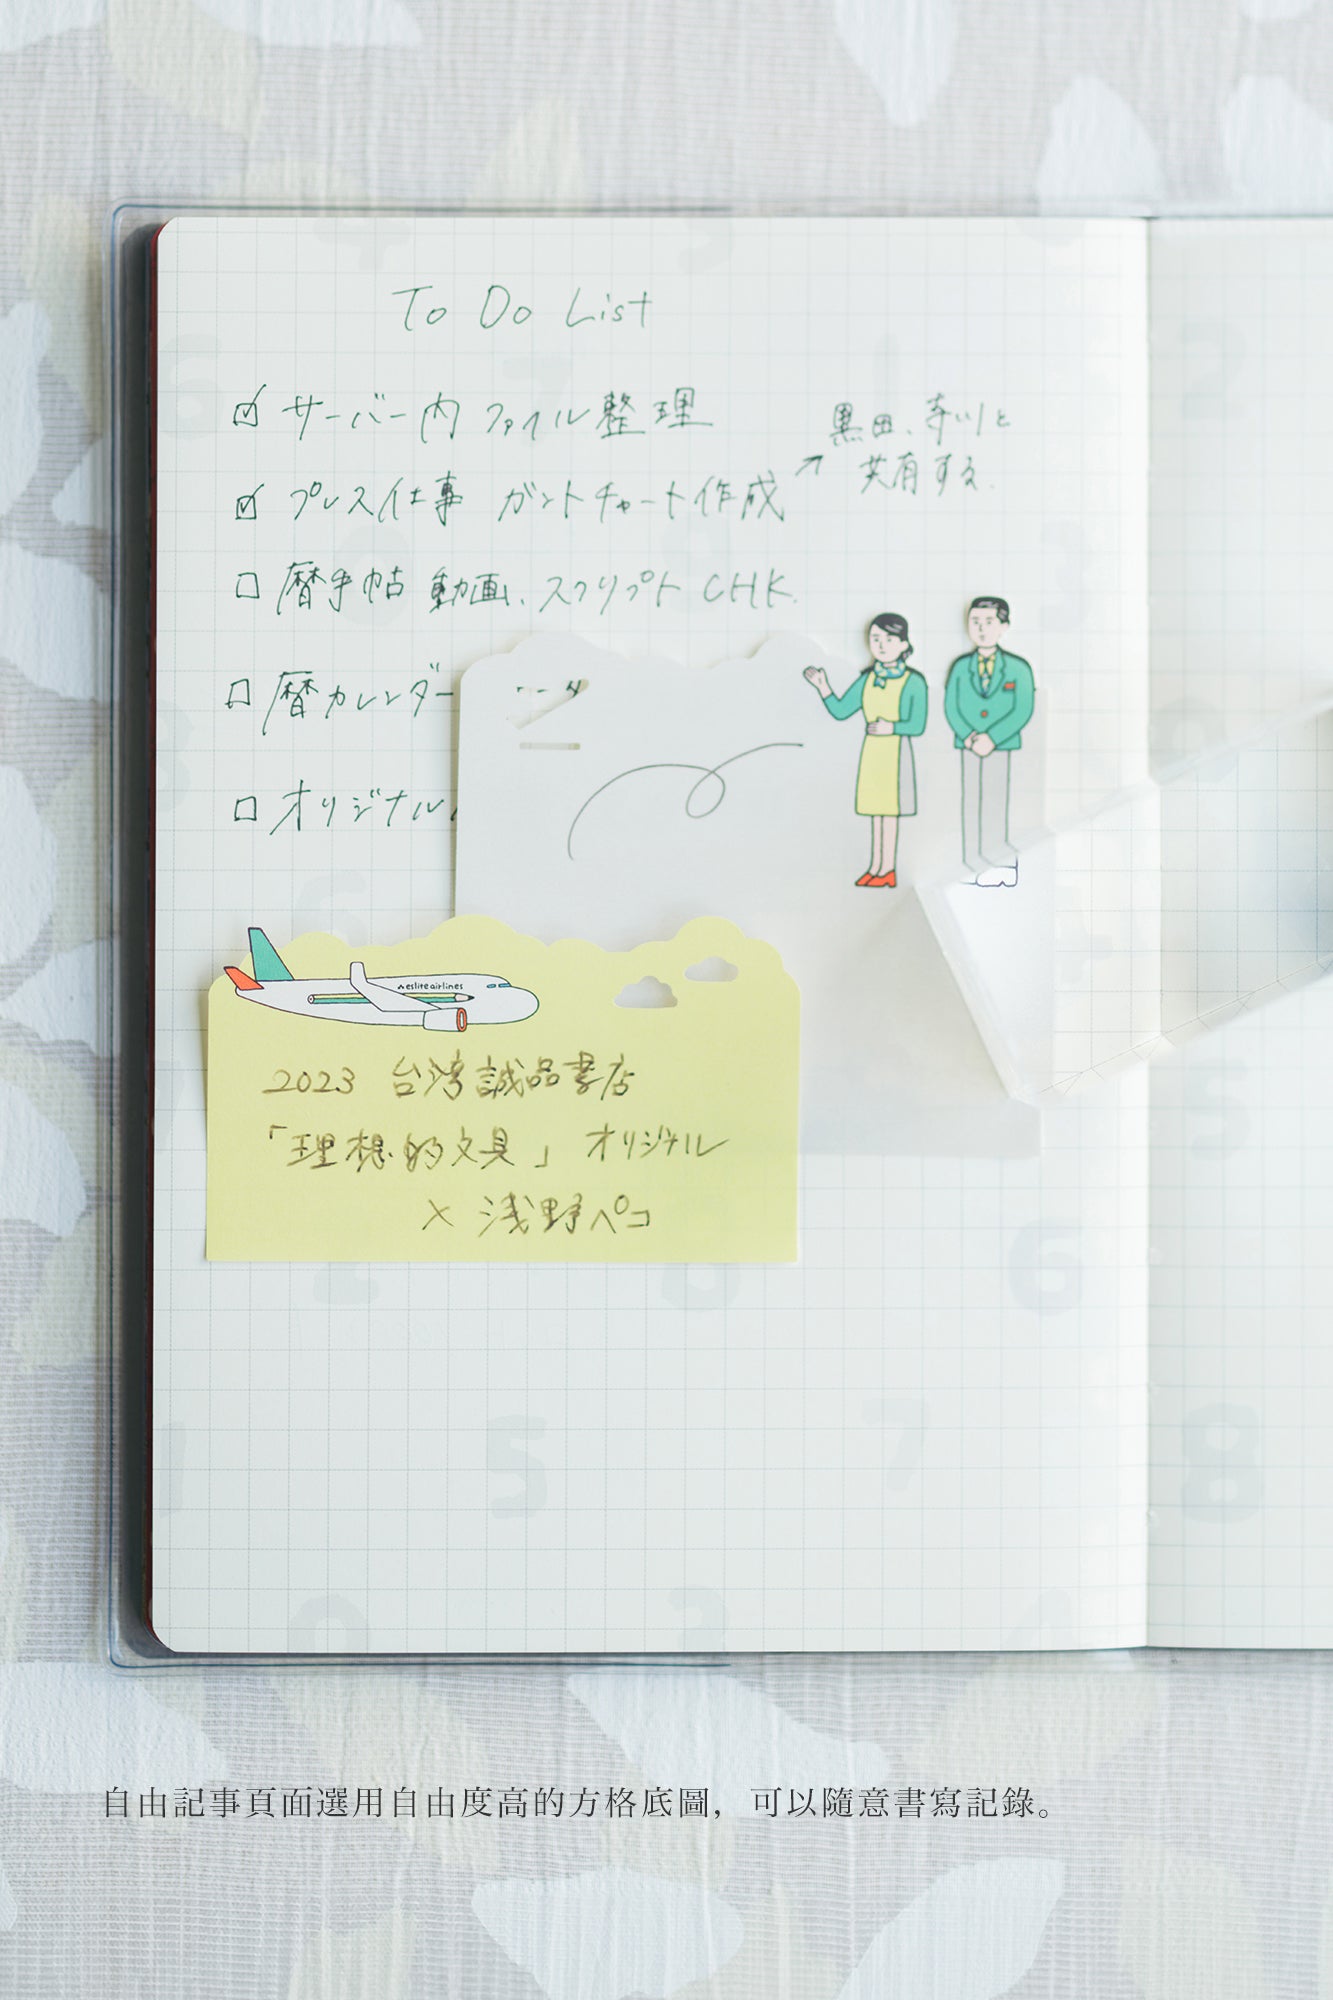 To Do List
☑ サーバー内 ファイル整理
黒田、寺川と
↗ 共有する.
☑ プレス仕事 ガントチャート作成
☐ 暦手帖 動画、スクリプト CHK.
☐ 暦カレンダー
☐ オリジナル
eslite airlines
2023 台湾誠品書店
「理想的文具」オリジナル
× 浅野ペコ
自由記事頁面選用自由度高的方格底圖，可以隨意書寫記錄。